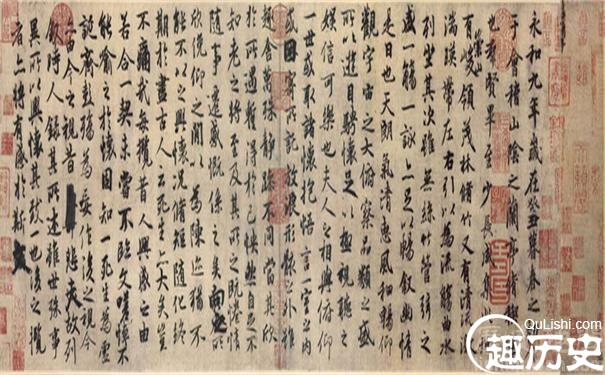 永和九年歲在癸丑暮春之初
于會稽山陰之蘭亭脩稧
也羣賢畢至少長咸集
有崇山峻領茂林脩竹又有清流激
湍暎帶左右引以為流觴曲水
列坐其次雖無絲竹管弦之
盛一觴一詠亦足以暢叙幽情
是日也天朗氣清惠風和暢仰
觀宇宙之大俯察品類之盛
所以遊目騁懷足以極視聽之
娛信可樂也夫人之相與俯仰
一世或取諸懷抱悟言一室之內
或因寄所託放浪形骸之外雖
趣舍萬殊靜躁不同當其欣
於所遇蹔得於己怏然自足不
知老之將至及其所之既惓情
隨事遷感慨係之矣向之所
欣俛仰之間以為陳迹猶不
能不以之興懷況脩短隨化終
期於盡古人云死生亦大矣豈
不痛哉每攬昔人興感之由
若合一契未嘗不臨文嗟悼不
能喻之於懷固知一死生為虛
誕齊彭殤為妄作後之視今
亦由今之視昔悲夫故列
敘時人錄其所述雖世殊事
異所以興懷其致一也後之攬
者亦將有感於斯文
QuLiShi.com
趣历史